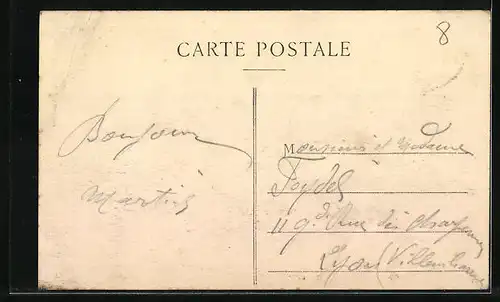 8
CARTE POSTALE
Bonjour
Monsieur et Madame
Martial
Feydel
119 Rue des
Lyon Villeurbanne